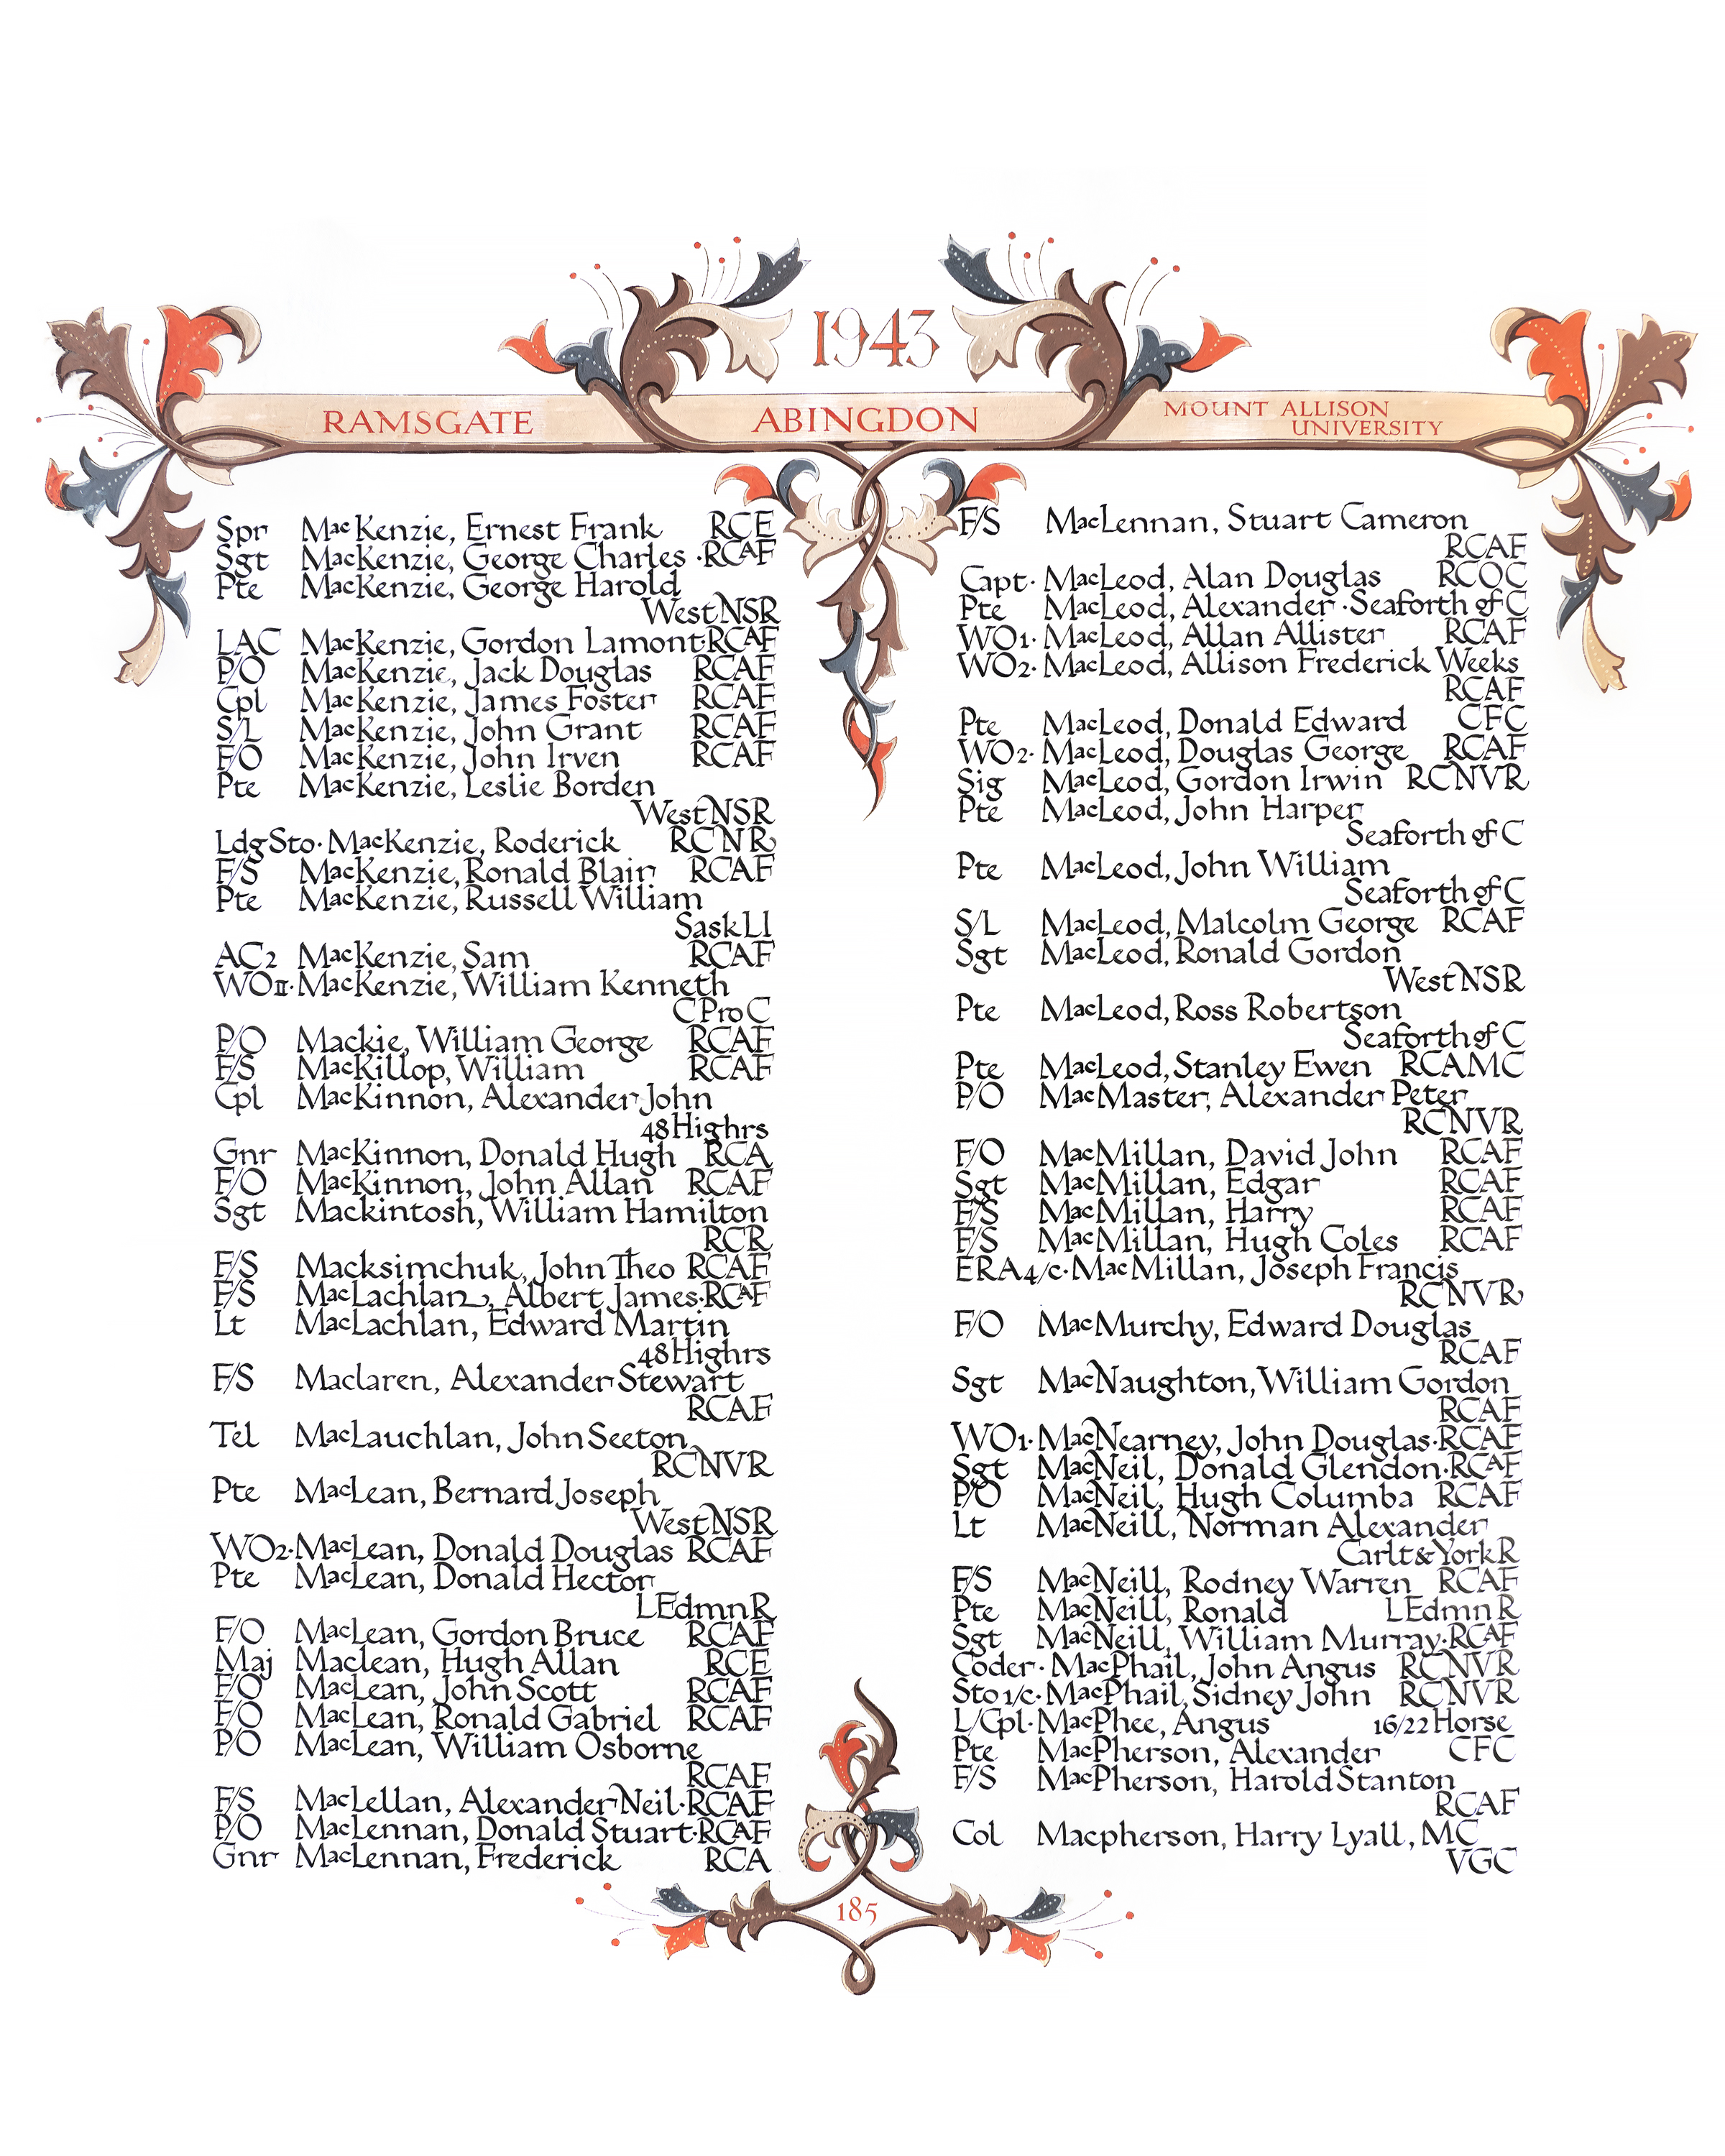 1943
RAMSGATE
ABINGDON
MOUNT ALLISON
UNIVERSITY
Spr MacKenzie, Ernest Frank RCE
Sgt MacKenzie, George Charles · RCAF
Pte MacKenzie, George Harold
West NSR
LAC MacKenzie, Gordon Lamont · RCAF
P/O MacKenzie, Jack Douglas RCAF
Cpl MacKenzie, James Foster RCAF
S/L MacKenzie, John Grant RCAF
F/O MacKenzie, John Irven RCAF
Pte MacKenzie, Leslie Borden
West NSR
Ldg Sto · MacKenzie, Roderick RCNR
F/S MacKenzie, Ronald Blair RCAF
Pte MacKenzie, Russell William
Sask LI
AC2 MacKenzie, Sam RCAF
WOII · MacKenzie, William Kenneth
C Pro C
P/O Mackie, William George RCAF
F/S MacKillop, William RCAF
Cpl MacKinnon, Alexander John
48 Highrs
Gnr MacKinnon, Donald Hugh RCA
F/O MacKinnon, John Allan RCAF
Sgt Mackintosh, William Hamilton
RCR
F/S Macksimchuk, John Theo RCAF
F/S MacLachlan, Albert James · RCAF
Lt MacLachlan, Edward Martin
48 Highrs
F/S Maclaren, Alexander Stewart
RCAF
Tel MacLauchlan, John Seeton
RCNVR
Pte MacLean, Bernard Joseph
West NSR
WO2 · MacLean, Donald Douglas RCAF
Pte MacLean, Donald Hector
L Edmn R
F/O MacLean, Gordon Bruce RCAF
Maj Maclean, Hugh Allan RCE
F/O MacLean, John Scott RCAF
F/O MacLean, Ronald Gabriel RCAF
P/O MacLean, William Osborne
RCAF
F/S MacLellan, Alexander Neil · RCAF
P/O MacLennan, Donald Stuart · RCAF
Gnr MacLennan, Frederick RCA
F/S MacLennan, Stuart Cameron
RCAF
Capt · MacLeod, Alan Douglas RCOC
Pte MacLeod, Alexander · Seaforth of C
WO1 · MacLeod, Allan Allister RCAF
WO2 · MacLeod, Allison Frederick Weeks
RCAF
Pte MacLeod, Donald Edward CFC
WO2 · MacLeod, Douglas George RCAF
Sig MacLeod, Gordon Irwin RCNVR
Pte MacLeod, John Harper
Seaforth of C
Pte MacLeod, John William
Seaforth of C
S/L MacLeod, Malcolm George RCAF
Sgt MacLeod, Ronald Gordon
West NSR
Pte MacLeod, Ross Robertson
Seaforth of C
Pte MacLeod, Stanley Ewen RCAMC
P/O MacMaster, Alexander Peter
RCNVR
F/O MacMillan, David John RCAF
Sgt MacMillan, Edgar RCAF
F/S MacMillan, Harry RCAF
F/S MacMillan, Hugh Coles RCAF
ERA 4/c · MacMillan, Joseph Francis
RCNVR
F/O MacMurchy, Edward Douglas
RCAF
Sgt MacNaughton, William Gordon
RCAF
WO1 · MacNearney, John Douglas · RCAF
Sgt MacNeil, Donald Glendon · RCAF
P/O MacNeil, Hugh Columba RCAF
Lt MacNeill, Norman Alexander
Carlt & York R
F/S MacNeill, Rodney Warren RCAF
Pte MacNeill, Ronald L Edmn R
Sgt MacNeill, William Murray · RCAF
Coder · MacPhail, John Angus RCNVR
Sto 1/c · MacPhail, Sidney John RCNVR
L/Cpl · MacPhee, Angus 16/22 Horse
Pte MacPherson, Alexander CFC
F/S MacPherson, Harold Stanton
RCAF
Col Macpherson, Harry Lyall, MC
VGC
185